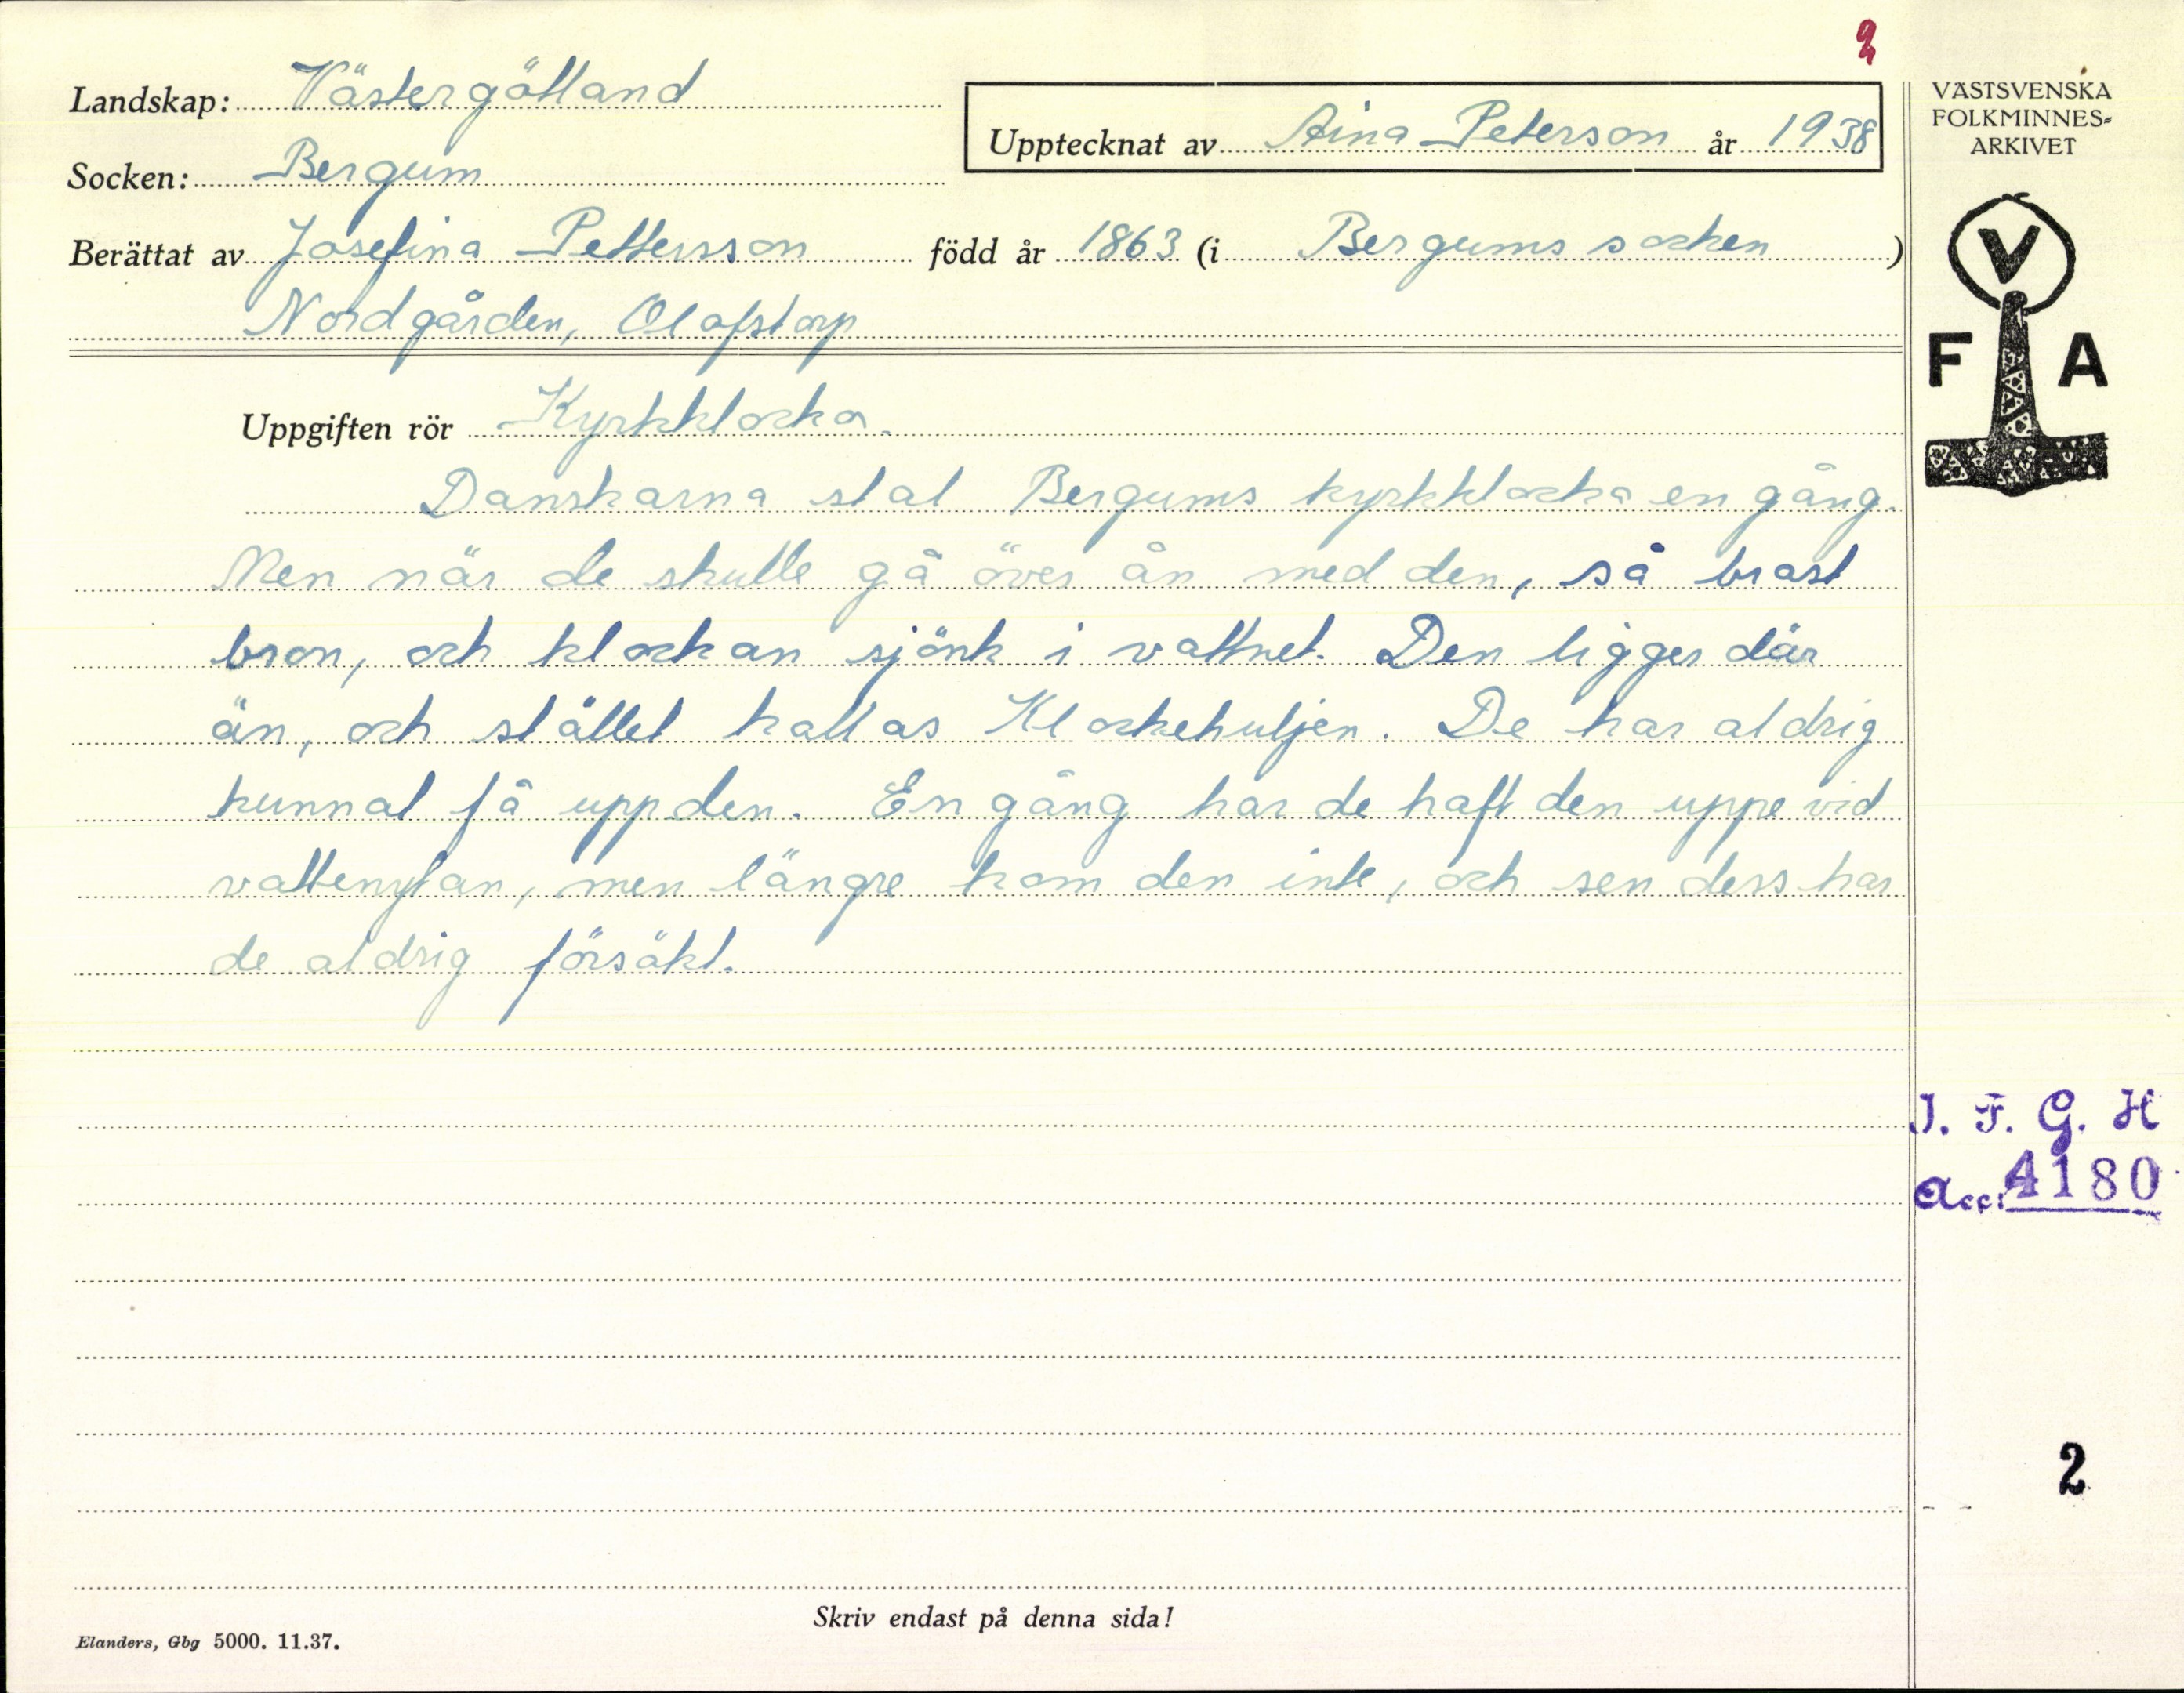 2
Landskap: Västergötland
Upptecknat av Aina Peterson år 1938
Socken: Bergum
Berättat av Josefina Pettersson född år 1863 (i Bergums socken)
Nordgården, Olofstorp
Uppgiften rör Kyrkklocka.
Danskarna stal Bergums kyrkklocka en gång.
Men när de skulle gå över ån med den, så brast
bron, och klockan sjönk i vattnet. Den ligger där
än, och stället kallas Klockehuljen. De har aldrig
kunnat få upp den. En gång har de haft den uppe vid
vattenytan, men längre kom den inte, och sen dess har
de aldrig försökt.
Skriv endast på denna sida!
Elanders, Gbg 5000. 11.37.
VÄSTSVENSKA
FOLKMINNES-
ARKIVET
V
F A
I. F. G. H
acc: 4180
2